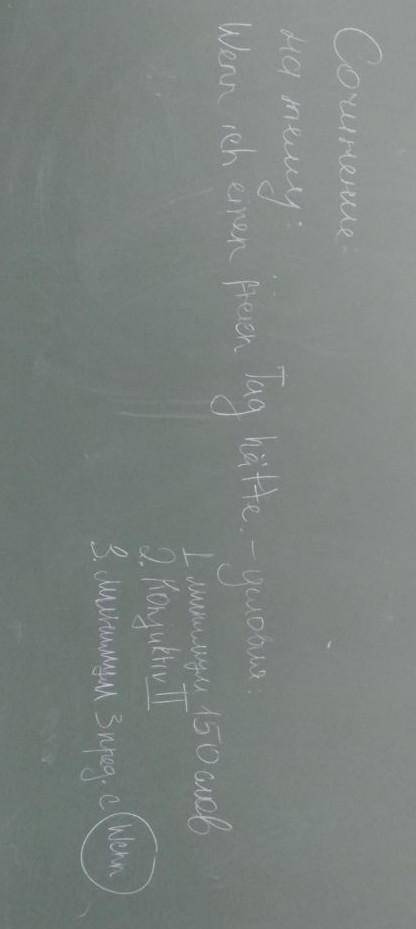 Сочинение
на тему:
Wenn ich einen freien Tag hätte. - условия:
1. минимум 150 слов
2. Konjuktiv II
3. минимум 3 пред. с Wenn